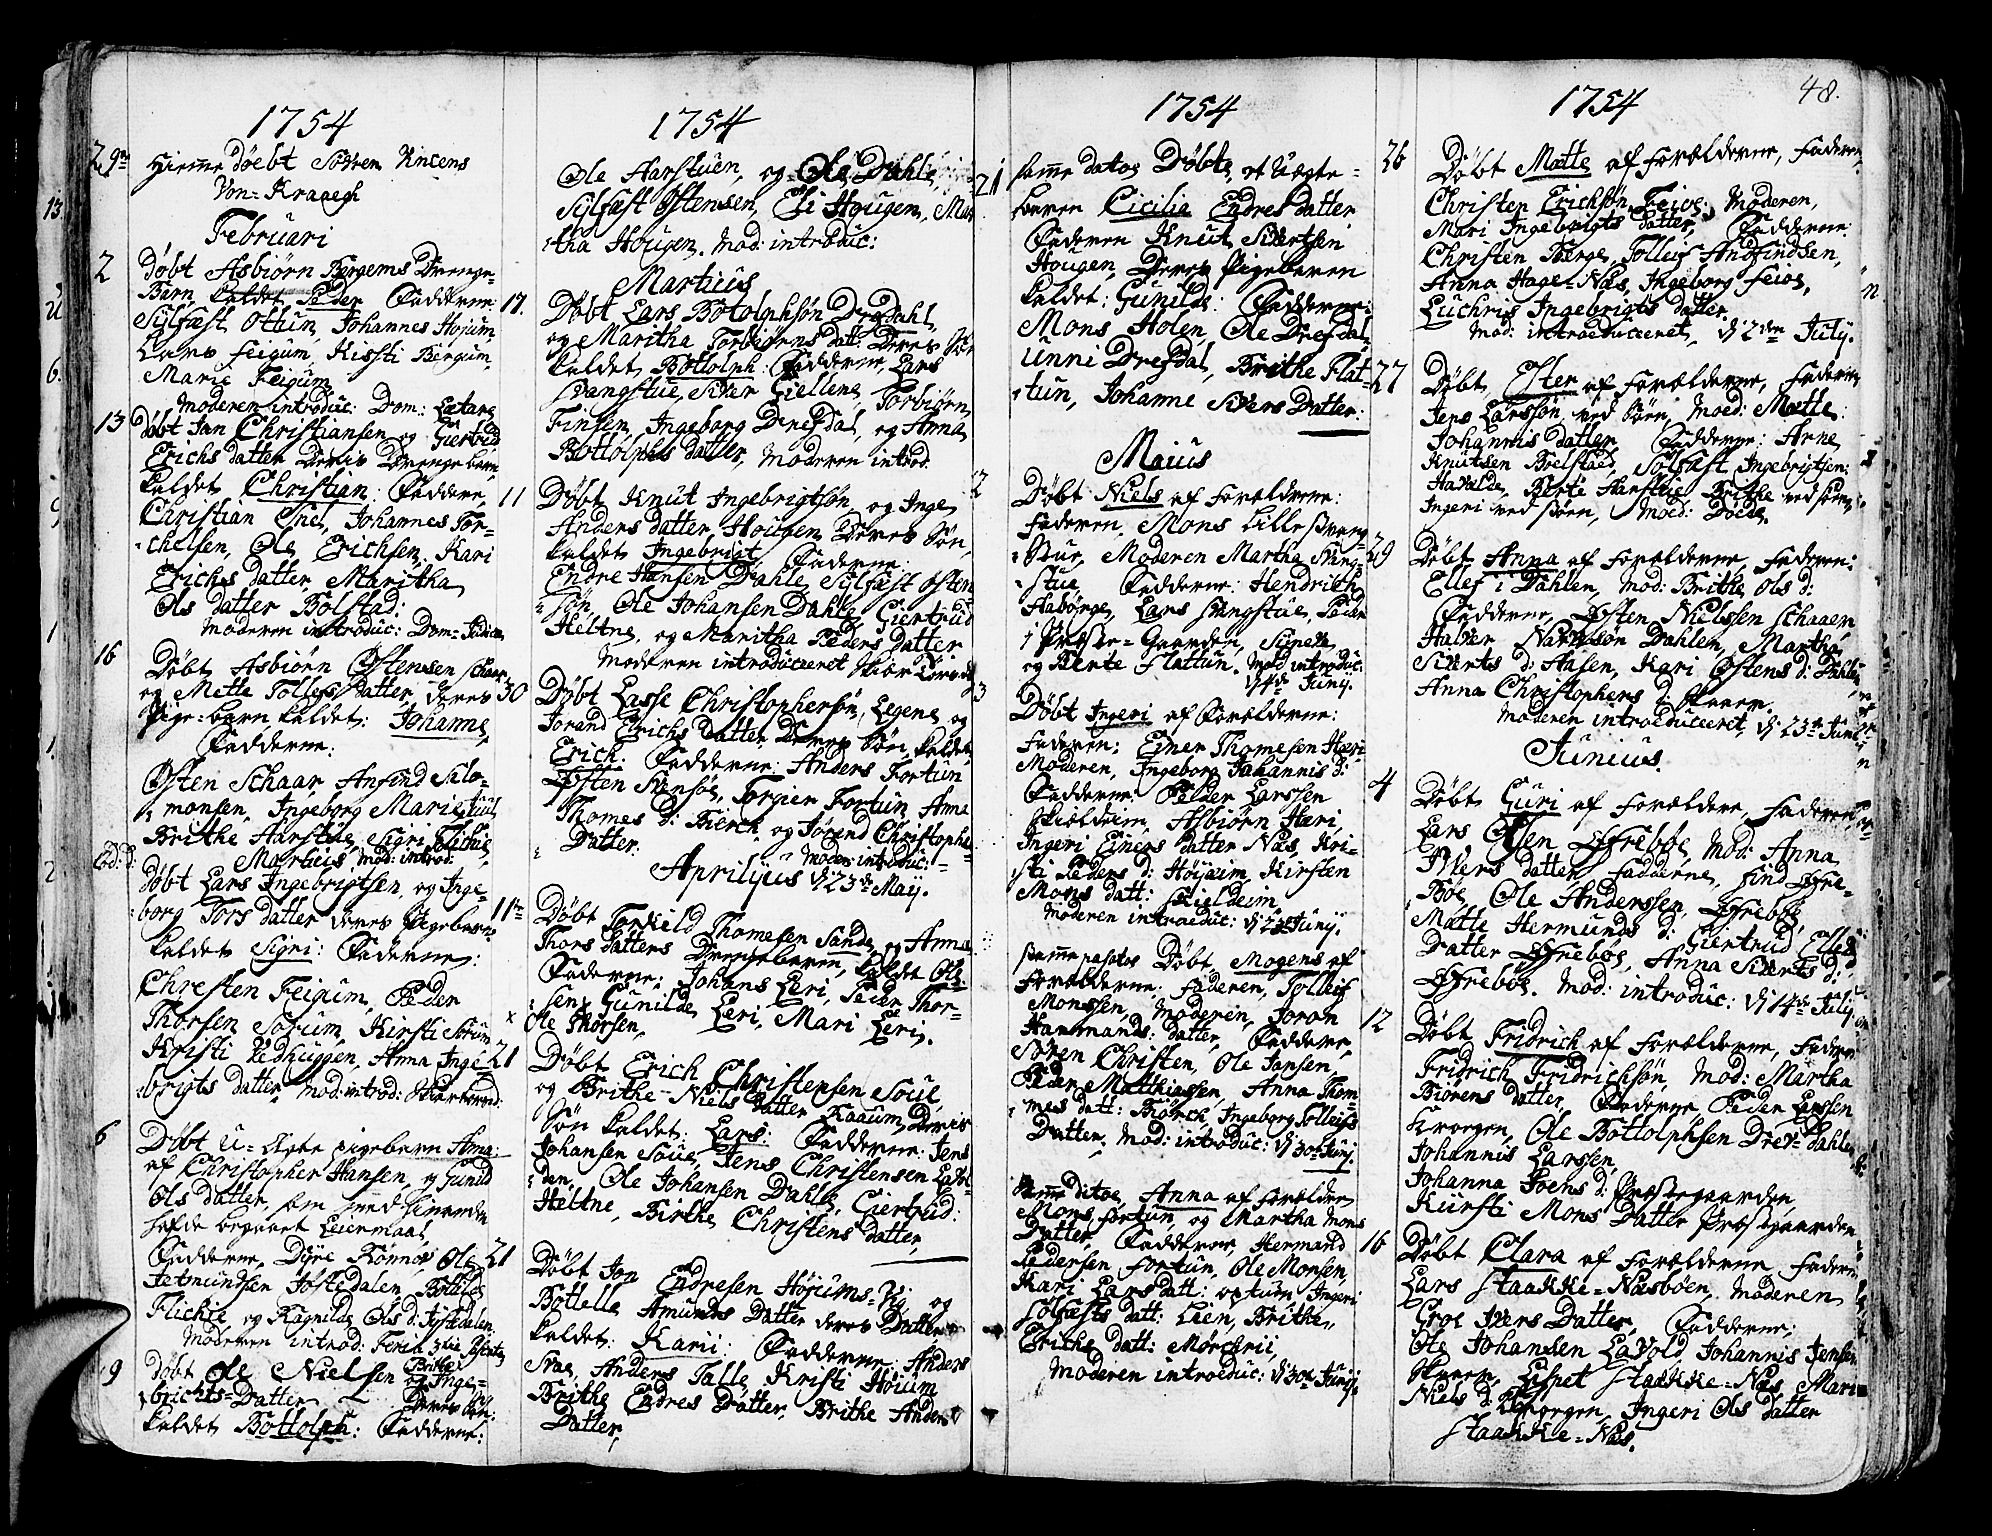 1754
29de Hjemme döebt Sören Vincens
Von Kraagh
Februari
2 Döbt Asbiörn Bergems Drenge-
Barn kaldet Peder Fadderne:
Sylfæst Ottun, Johannes Hojum,
Lars Feigum, Kirsti Bergum,
Marie Feigum
Moderen introduc: Dom: Lætare
13 döbt Jan Christiansen og Giertrud
Erichs datter Deris Drengebarn
kaldet Christian: Faddere
Christian Snel, Johannes Tor-
chelsen, Ole Erichsen, Kari
Erichs datter, Maritha
Ols datter Bolstad:
Moderen introduc: Dom: Judica
16 Döbt Asbiörn Östensen Schaar
og Mette Tollefs datter, deres
Pige-barn kaldet: Johanne
Fadderne:
Östen Schaar Anfind Salo-
monsen, Ingeborg Marie
Brithe Harstue, Sigri
Martius Mod: introd:
döbt Lars Ingebrigtsen, og Inge-
borg Tors datter deres Pigebarn
kaldet Sigri: Fadderne:
Christen Feigum, Peder
Thorsen Sörum, Kirsti Sörum
Kristi Vedhuggen, Anna Inge-
brigts datter, Mod: introd:
6 Döbt u-ægte pigebarn Anna:
af Christopher Hansen, og Gunild
Ols datter, som med hinanden
hafde begaaet Leiermaal,
Fadderne, Dyre Rönnei, Ole
Jetmundsen Jostedalen, Botilde
Flichie, og Ragnilde Ols d: Jostedalen
Moderen introd: Feria 3tia
9 Döbt Ole Nielsen og Brithe Inge-
brichts-Datter Deres Sön:
kaldet Bottolph: Fadderne:
1754
Ole Harstuen, og Ole Dahle,
Sylfæst Östensen, Eli Hougen, Mar-
tha Hougen. Mod: introduc:
Martius
17. Döbt Lars Botolphsön Dregdahl,
og Maritha Torbiörns datt: Deres Sön
kaldet Bottolph: Fadderne Lars
Svangstue, Siver Giellene, Torbiörn
Finsen, Ingeborg Dresdal, og Anna
Bottolphs datter, Moderen introd.
11 Döbt Knut Ingebrigtsön og Inge
Anders datter Hougen Deres Sön,
kaldet Ingebrigt, Fadderne:
Endre Hansen Dahle, Sylfæst Östen-
sön, Ole Johansen Dahle, Giertrud
Heltne, og Maritha Peders Datter
Moderen introduceeret
30 Döbt Lasse Christophersön, Legene og
Jorand Erichs datter Deres Sön kaldet
Erich: Fadderne: Anders Fortun
Östen Torgier Fortun Anna
Thomes d: Bierck, og Jörend Christophe-
Datter. Moder introduc:
Aprilius d: 23de Maij.
11te Döbt Torkield Thomesen Sande og Anna
Thors datters Drengebarn, kaldet Ole
Fadderne: Johans Leri, Peder Thor-
sen, Gunilde Leri, Mari Leri.
Ole Thorsen,
21 Döbt Erich Christensen Soue,
og Brithe Niels datter Kaaum, Deris
Sön kaldet: Lars: Fadderne: Jens
Johansen Soue, Jens Christensen Lavol-
den, Ole Johansen Dahle, Giertrud:
Heltne, Birthe Christens datter,
21 Döbt Jon Endresen Höjums Ej og
Bottelle Amunds Datter deres Datter
kaldet: Karii: Fadderne: Anders
Anders Talle Kristi Höium
Brithe Endres Datter, Brithe Anders
Datter,
1754
21 samme dato Döbte et Uægte-
barn Cicilia Endres datter
Faderen Knut Sivertsen
Hougen, Deres Pigebarn
kaldet: Gunilde: Fadderne:
Mons Holen, Ole Dresdal,
unni Dresdal, Brithe Flat-
tun, Johanne Sivers Datter:
Maius
2 Döbt Niels af forældrene:
Faderen, Mons Lille Svang-
stue, Moderen Martha Svang-
stue Fadderne: Hendrich
Habörge, Lars Svangstue, Peder
i Præste-Gaarden, Synneve
og Berte Flattun. Mod introduc:
d: 4de Junij.
3 Döbt Ingeri af Forældrene:
Faderen: Einer Thomesen Hæri,
Moderen, Ingeborg Johannis d:
Fadderne: Peder Larssen
Skieldeim, Asbiörn Hæri,
Ingeri Einers datter Næs, Kri-
sti Peders d: Höjheim, Kirsten
Mons datt: Skieldeim
Moderen introduc: d: 23de Junij.
samme datos Döbt Mogens af
forældrene: faderen, Tolleif
Monssen, Moderen, Joran
Hammands: datter, Faddere,
Sören Christen, Ole Jansen,
Peder Matthiassen, Anna Thom-
mes datt: Biörch, Ingeborg Tolleifs
Datter, Mod: introduc: d: 30te Junij.
samme ditoe, Anna af forældre
Mons Fortun, og Martha Mons
Datter, Fadderne, Hermand
Pedersen Fortun, Ole Monsen,
Kari Lars datt: optun, Ingeri
Solfæsts datt: Lien, Brithe,
Erichs datt: Mörchrii,
Moderen introduc: d: 30te Junij.
1754 48.
26 Döbt Mette af forældrene, faderen
Christen Erichsön Feioe Moderen,
Mari Ingebrigts datter, Fadderne:
Christen Berge, Tolleif Andfindsen,
Anna Hage-Næs, Ingeborg Feios,
Luchris Ingebrigts datter.
Mod: introduceeret, d: 2den July.
27 Döbt Ester af forældrene, faderen
Jens Larssön ved söen, Moed: Mette
Johannis datter Fadderne: Arne
Knutsen Boelstaed, Solfæst Ingebrigtsen:
Havalde, Berte Harstue, Brithe ved söen
Ingeri ved söen, Moed: Döede.
29 Döbt Anna af forældrene, faderen:
Ellef i Dahlen, Mod: Brithe Ols d:
Fadderne, Östen Nielssen Schaaen
Halver Dahlen, Martha
Siverts d: Hasen, Kari Östens d: Dahlen
Anna Christophers d: Skaaen.
Moderen introduceeret, d: 23de Junij
Junius.
4 Döbt Guri af forældre, faderen
Lars Olsen Öfreboe, Mod: Anna
Ivers datter Fadderne, Find Öfre-
Boe, Ole Anderssen, Öfreboe,
Mette Hermunds d: Giertrud Ellefs
Datter Öfreboe, Anna Siverts d:
Öfreboe. Mod: introduc: d: 14de July.
12 Döbt Fridrich af forældrene, faderen
Fridrich Fridrichsön, Mod: Martha
Biörens datter, Fadderne Peder Larssen
Kroegen, Ole Bottolphsen Drev-dahlen
Johannis Larssen,
Johanna Joens d: Præstegaarden,
Kirsti Mons Datter Præstgaarden
16 Döbt Clara af forældrene faderen
Lars Staakke-Næsböen, Moderen
Groe Ivers Datter, Fadderne:
Ole Johansen Lavold, Johannis Jensen
Skaaen, Lispet Staakke-Næs, Mari
Niels d: Kroegen, Ingeri Ols datter
Staakke-Næs.